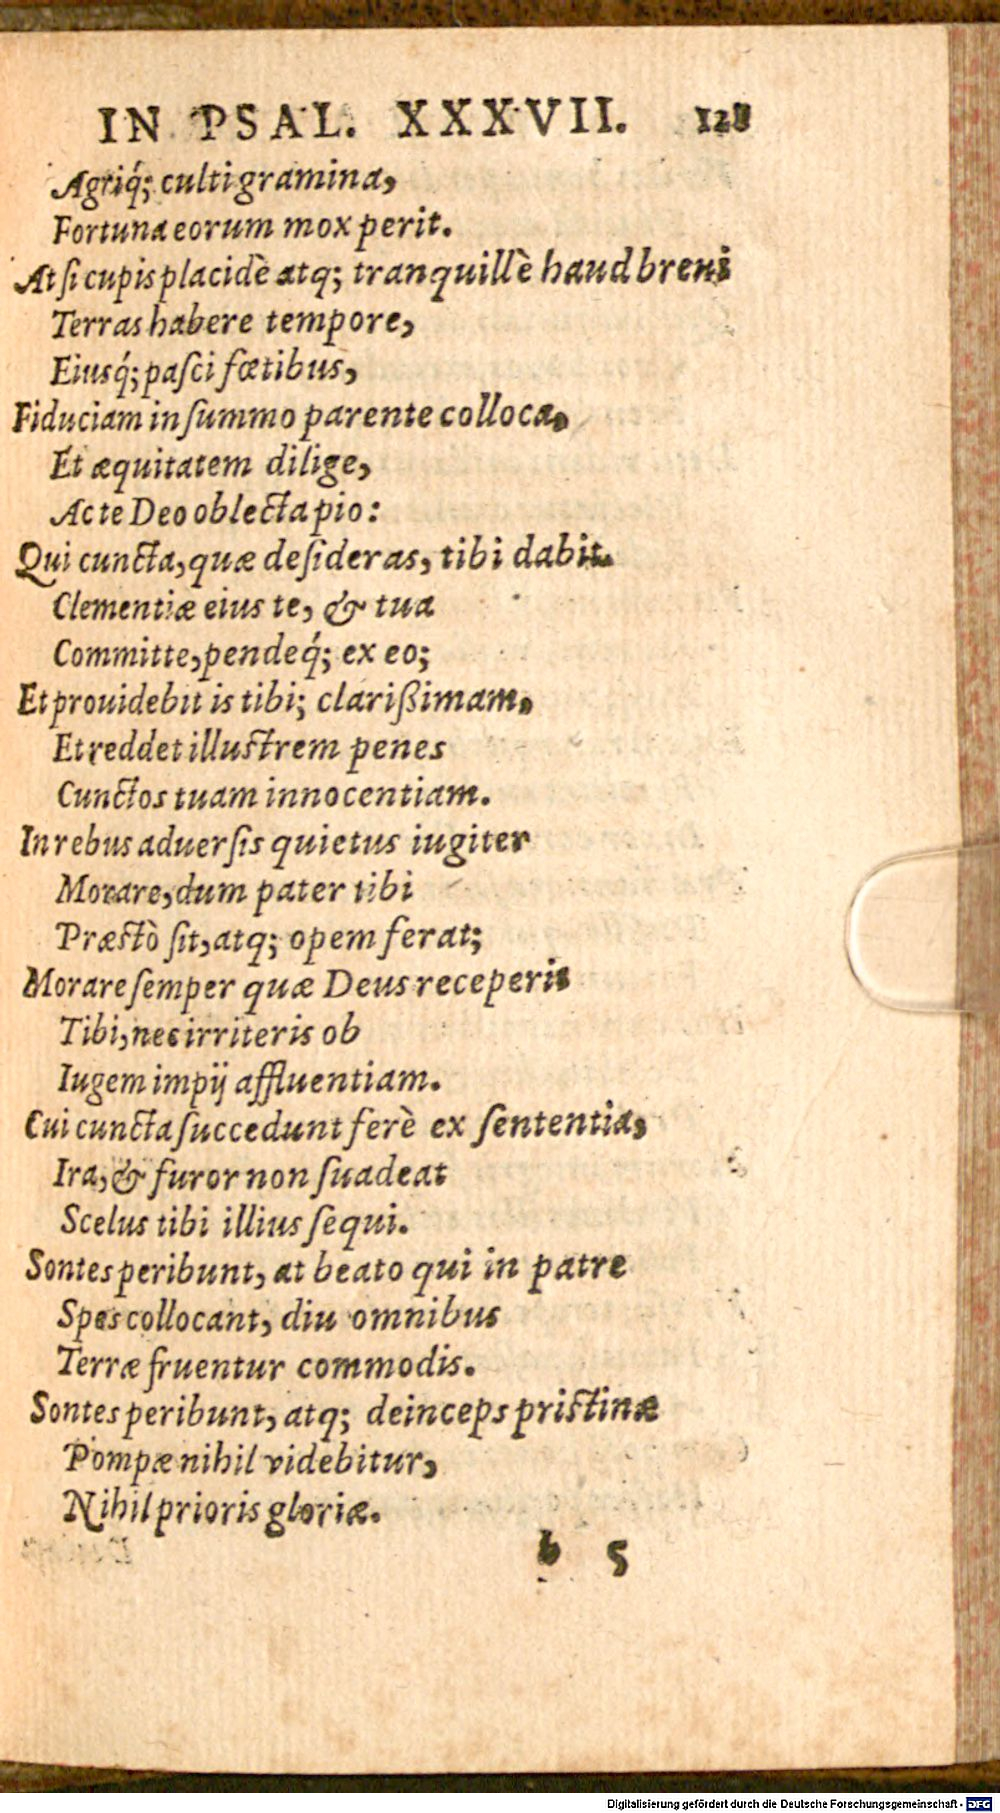 IN PSAL. XXXVII. 128
Agriq́; culti gramina,
Fortuna eorum mox perit.
At si cupis placidè atq; tranquillè haud breui
Terras habere tempore,
Eiusq́; pasci fœtibus,
Fiduciam in summo parente colloca,
Et æquitatem dilige,
Ac te Deo oblecta pio:
Qui cuncta, quæ desideras, tibi dabit.
Clementiæ eius te, & tua
Committe, pendeq́; ex eo;
Et prouidebit is tibi; clarißimam,
Et reddet illustrem penes
Cunctos tuam innocentiam.
In rebus aduersis quietus iugiter
Morare, dum pater tibi
Præstò sit, atq; opem ferat;
Morare semper quæ Deus receperit
Tibi, nec irriteris ob
Iugem impij affluentiam.
Cui cuncta succedunt ferè ex sententia,
Ira, & furor non suadeat
Scelus tibi illius sequi.
Sontes peribunt, at beato qui in patre
Spes collocant, diu omnibus
Terræ fruentur commodis.
Sontes peribunt, atq; deinceps pristinæ
Pompæ nihil videbitur,
Nihil prioris gloriæ.
b 5
Digitalisierung gefördert durch die Deutsche Forschungsgemeinschaft - DFG